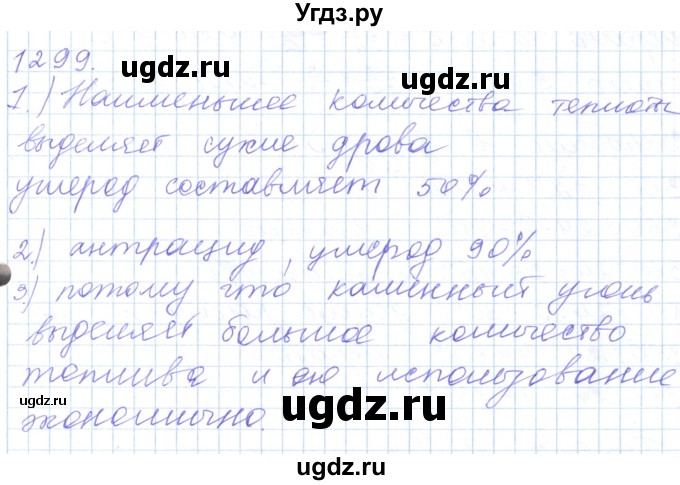 Угдз.ру
1299.
ugdz.ru ugdz.ru
1.) Наименьшее количества теплоты
выделяет сухие дрова
углерод составляет 50%
ugdz.ru ugdz.ru
2.) антрацид, углерод 90%
3.) потому что каменный уголь
выделяет большое количество
топлива и его использование
экономично.
ugdz.ru ugdz.ru
ugdz.ru